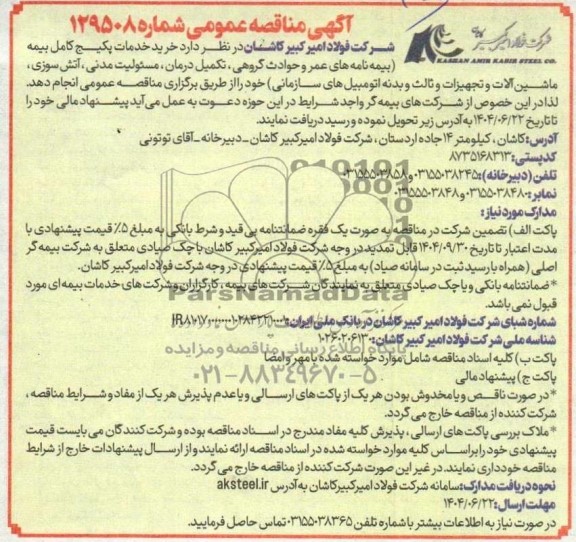 آگهی مناقصه عمومی شماره ۱۲۹۵۰۸
شرکت فولاد امیرکبیر کاشان
KASHAN AMIR KABIR STEEL CO.
شرکت فولاد امیر کبیر کاشان در نظر دارد خرید خدمات پکیج کامل بیمه
(بیمه نامه های عمر و حوادث گروهی ، تکمیل درمان ، مسئولیت مدنی ، آتش سوزی ،
ماشین آلات و تجهیزات و ثالث و بدنه اتومبیل های سازمانی) خود را از طریق برگزاری مناقصه عمومی انجام دهد.
لذا در این خصوص از شرکت های بیمه گر واجد شرایط در این حوزه دعوت به عمل می آید پیشنهاد مالی خود را
تا تاریخ ۱۴۰۴/۰۶/۲۲ به آدرس زیر تحویل نموده و رسید دریافت نمایند.
آدرس: کاشان ، کیلومتر ۱۴ جاده اردستان ، شرکت فولاد امیرکبیر کاشان _ دبیرخانه _ آقای توتونی
کدپستی: ۸۷۳۵۱۶۸۳۱۳
تلفن (دبیرخانه): ۰۳۱۵۵۰۳۸۲۴۵ و ۰۳۱۵۵۵۰۳۸۵۸
نمابر: ۰۳۱۵۵۰۳۸۴۸۰ و ۰۳۱۵۵۵۰۳۸۴۸
مدارک مورد نیاز:
پاکت الف) تضمین شرکت در مناقصه به صورت یک فقره ضمانتنامه بی قید و شرط بانکی به مبلغ ۵٪ قیمت پیشنهادی با
مدت اعتبار تا تاریخ ۱۴۰۴/۰۹/۳۰ قابل تمدید در وجه شرکت فولاد امیرکبیر کاشان یا چک صیادی متعلق به شرکت بیمه گر
اصلی (همراه با رسید ثبت در سامانه صیاد) به مبلغ ۵٪ قیمت پیشنهادی در وجه شرکت فولاد امیرکبیر کاشان.
* ضمانتنامه بانکی و یا چک صیادی متعلق به نمایندگان شرکت های بیمه ، کارگزاران و شرکت های خدمات بیمه ای مورد
قبول نمی باشد.
شماره شبای شرکت فولاد امیر کبیر کاشان در بانک ملی ایران:
شناسه ملی شرکت فولاد امیر کبیر کاشان: ۱۰۲۶۰۲۰۶۱۳۰
پاکت ب) کلیه اسناد مناقصه شامل موارد خواسته شده با مهر و امضا
پاکت ج) پیشنهاد مالی
* در صورت ناقص و یا مخدوش بودن هر یک از پاکت های ارسالی و یا عدم پذیرش هر یک از مفاد و شرایط مناقصه ،
شرکت کننده از مناقصه خارج می گردد.
* ملاک بررسی پاکت های ارسالی ، پذیرش کلیه مفاد مندرج در اسناد مناقصه بوده و شرکت کنندگان می بایست قیمت
پیشنهادی خود را بر اساس کلیه موارد خواسته شده در اسناد مناقصه ارائه نمایند و از ارسال پیشنهادات خارج از شرایط
مناقصه خودداری نمایند. در غیر این صورت شرکت کننده از مناقصه خارج می گردد.
نحوه دریافت مدارک: سامانه شرکت فولاد امیرکبیر کاشان به آدرس aksteel.ir
مهلت ارسال: ۱۴۰۴/۰۶/۲۲
در صورت نیاز به اطلاعات بیشتر با شماره تلفن ۰۳۱۵۵۰۳۸۳۶۵ تماس حاصل فرمایید.
ParsNamadData
پایگاه اطلاع رسانی مناقصه و مزایده
۰۲۱-۸۸۳۴۹۶۷۰-۵